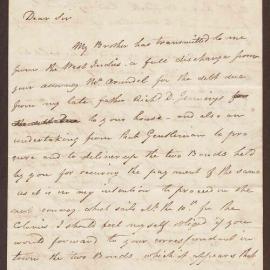 Dear Sir
My Brother has transmitted to me
from the West Indies a full discharge from
your attorney Mr. Arundel for the debt due
from my late father Rich'd D. Jennings
to your house - and also an
undertaking from that Gentleman to pro
cure and to deliver up the two Bonds held
by you for securing the payment of the same
as it is my intention to proceed in the
next convoy which sails at the 10th for the
Colonies I should feel myself obliged if you
would forward to your correspondent in
town the two Bonds, which it appears that